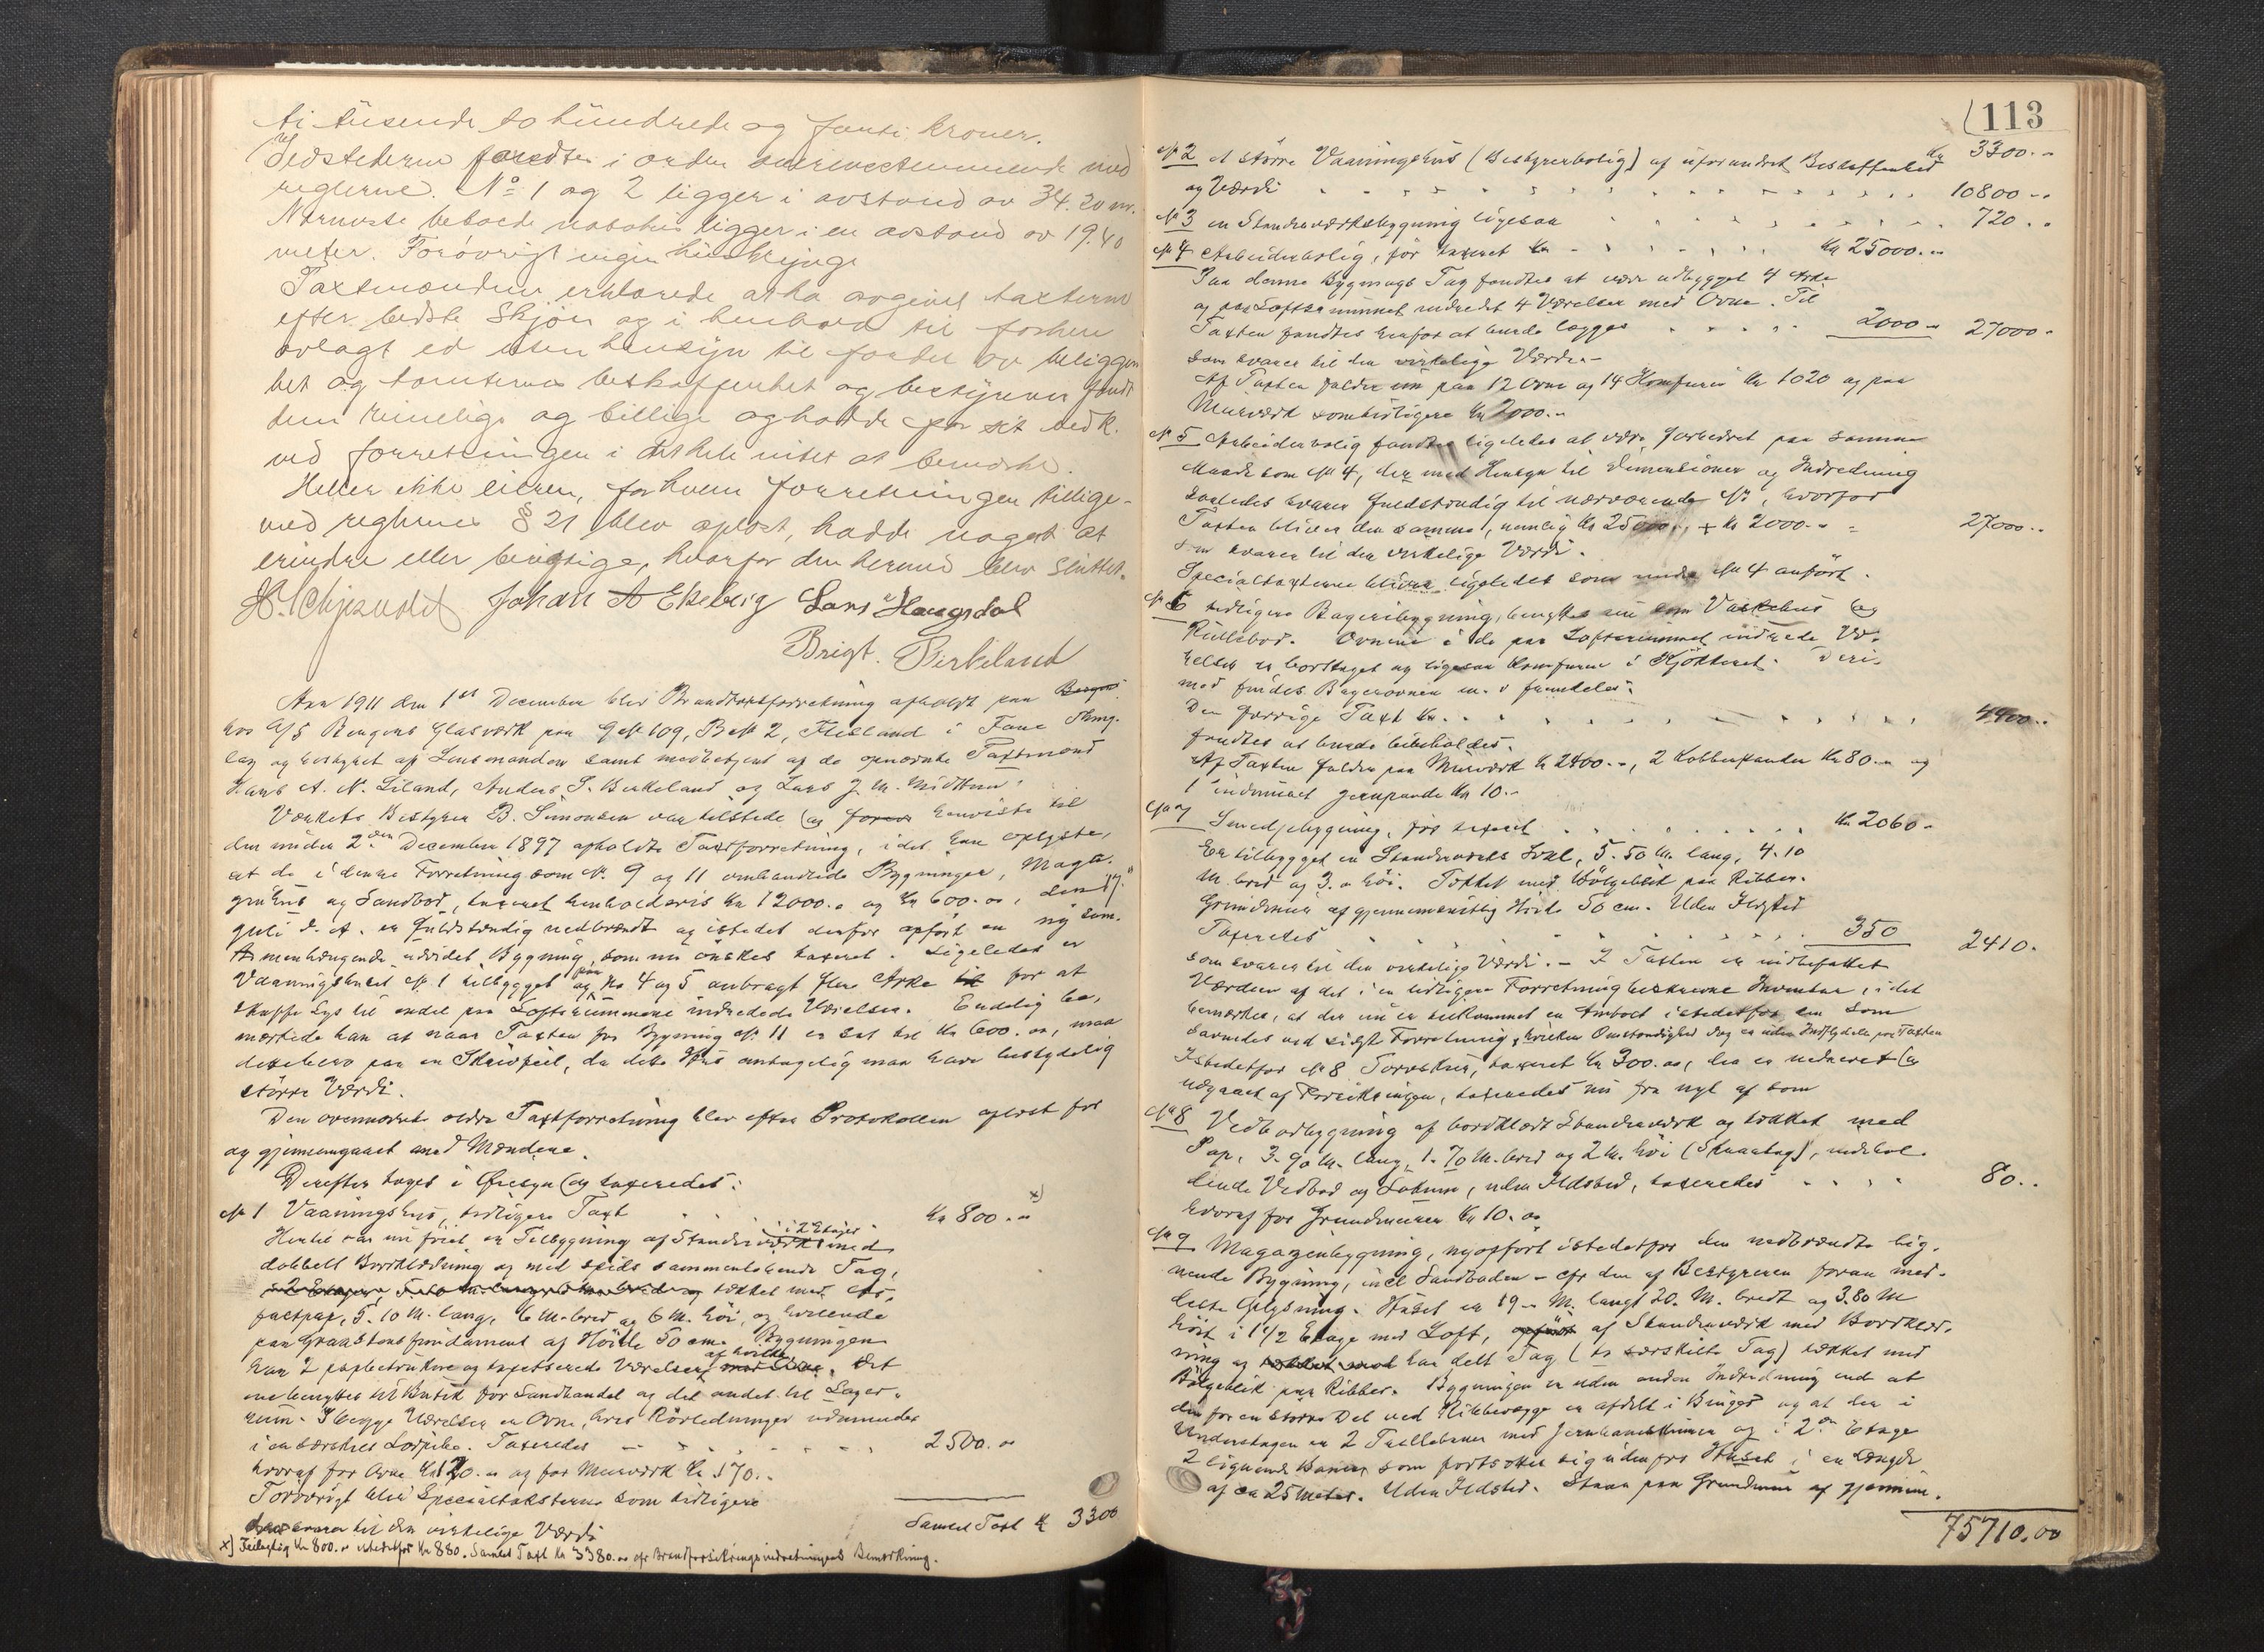 ti tusende to hundrede og fonti kroner.
Ildstederne fandtes i orden overensstemmende med
reglerne. No 1 og 2 ligger i avstand av 34.20 m.
Nærmeste beboede nabohus ligger i en avstand av 19.40
meter. Forøvrigt ingen husklynge
Taxtmændene erklærede at ha avgivet taxterne
efter bedste skjøn og i henhold til forhen
avlagt ed uten hensyn til fordel av beliggen
het og tomternes beskaffenhet og bestyreren fandt
dem rimelige og billige og hadde for sit vedk.
ved forretningen i det hele intet at bemerke.
Heller ikke eieren, for hvem forretningen tillige-
med reglernes § 21 blev oplæst, hadde noget at
erindre eller berigtige, hvorfor den hermed blev sluttet.
Johan A Ekelvig Lars Haugsdal
Brigt. Birkeland
Aar 1911 den 1st December blev Brandtaxtforretning afholdt paa Bergens
hos A/S Bergens Glasværk paa G.№ 109, B.№ 2, Fjelland i Fane Thing-
lag og bestyret af Lensmanden samt medbetjent af de opnævnte Taxtmænd
Hans A. N. Liland, Anders S. Birkeland og Lars J. M. Midttun.
Værkets Bestyrer B. Simonsen var tilstede og henviste til
den under 2den December 1897 afholdte Taxtforretning, idet han oplyste,
at de i denne Forretning som №. 9 og 11 omhandlede Bygninger, Maga-
sinhus og Sandbod, taxeret henholdsvis Kr 12000.00 og Kr 600.00, den 17.
Juli d. A. er fuldstændig nedbrændt og istedet derfor opført en ny sam-
menhængende udvidet Bygning, som nu ønskes taxeret. Ligeledes er
Vaaningshuset №. 1 tilbygget og paa No 4 og 5 anbragt flere Arke for at
skaffe Lys til endel paa Loftsrummene indredede Værelser. Endelig be-
mærkede han at naar Taxten for Bygning №. 11 er sat til Kr 600.00, maa
dette bero paa en Skrivfeil, da dette Hus antagelig maa have betydelig
større Værdi.
Den ovennævnte ældre Taxtforretning blev efter Protokollen oplæst for
og gjennemgaaet med Mændene.
Derefter toges i Øiesyn og taxeredes:
№ 1 Vaaningshus, tidligere Taxt Kr 800.00 x)
Hertil var nu føiet en Tilbygning af Standerværk i 2 Etager med
dobbelt Bordklædning og med spids sammenløbende Tag,
tækket med As-
faltpap, 5.10 M. lang, 6 M. bred og 6 M. høi, og hvilende
paa Graastensfundament af Høide 50 cm. Bygningen
har 2 papbetrukne og tapetserede Værelser, af hvilke det
ene benyttes til Butik for Landhandel og det andet til Lager-
rum. I begge Værelser er Ovne, hvis Rørledninger udmunder
i en særskilt Lodpibe. Taxeredes 2500.00
hvoraf for Ovne Kr 120.00 og for Murværk Kr 170.-
Forøvrigt blev Specialtaksterne som tidligere
svarer til den virkelige Værdi
Samlet Taxt Kr 3300
x) Feilagtig Kr 800.00 istedetfor Kr 880. Samlet Taxt Kr 3380.00 cfr Brandforsikringsindretningens Bemærkning.
113
Kr 3300.-
№ 2 et større Vaaningshus (Bestyrerbolig) af uforandret Beskaffenhed
og Værdi 10800 --
№ 3 en Standerværksbygning ligesaa 720 ..
№ 4 Arbeiderbolig, før taxeret Kr 25000.00
Paa denne Bygnings Tag fandtes at være udbygget 4 Arke
og paa Loftsrummet indredet 4 Værelser med Ovne. Til
Taxten fandtes herfor at burde lægges 2000 - 27000 -
som svarer til den virkelige Værdi.-
Af Taxten falder paa 12 Ovne og 14 Komfurer Kr 1020 og paa
Murværk som tidligere Kr 2000.-
№ 5 Arbeiderbolig fandtes ligeledes at være forbedret paa samme
Maade som № 4, der med Hensyn til Dimensioner og Indredning
saaledes svarer fuldstændig til nærværende №, hvorfor
Taxten bliver den samme, nemlig Kr 25000.- + Kr 2000.- = 27000..
som svarer til den virkelige Værdi.
Specialtaxterne bliver ligeledes som under № 4 anført.
№ 6 tidligere Bageribygning, benyttes nu som Vaskehus og
Rullebod. Ovnene i de paa Loftsrummet indrede Væ-
relser er borttaget og ligesaa Komfuren i Kjøkkenet. Deri-
mod findes Bagerovnen m. v. fremdeles.
Den forrige Taxt Kr. 4400..
fandtes at burde bibeholdes.
Af Taxten falder paa Murværk Kr 2400.-, 2 Kobberpander Kr 80.- og
1 indmuret Jernpande Kr 10.-
№ 7 Smedjebygning, før taxeret Kr 2060 -
Er tilbygget en Standerværks Sval, 5.50 M. lang, 4.10
M. bred og 3.- høi. Tækket med Bølgeblik paa Ribber.
Grundmur af gjennemsnitlig Høide 50 cm. Uden Ildsted
Taxeredes 350 2410.
som svarer til den virkelige Værdi. - I Taxten er indbefattet
Værdien af det i en tidligere Forretning beskrevne Inventar, idet
bemærkes, at der nu er bekommet en Ambolt istedetfor en som
savnedes ved sidste Forretning, hvilken Omstændighed dog er uden Indflydelse paa Taxten
Istedetfor № 8 Torvskur, taxeret Kr 300.00, der er nedrevet og
udgaaet af Forsikringen, taxeredes nu fra nyt af som
№ 8 Vedbodbygning af bordklædt Standerværk og tækket med
Pap, 3.90 M. lang, 1.70 M. bred og 2 M. høi (Skraatag), indehol-
dende Vedbod og Lokum, uden Ildsted, taxeredes 80..
hvoraf for Grundmuren Kr 10.00
№ 9 Magazinbygning, nyopført istedetfor den nedbrændte lig-
nende Bygning, incl Sandboden - cfr den af Bestyreren foran med-
delte Oplysning. Huset er 19 - M. langt 20. M. bredt og 3.80 M
høit i 1 1/2 Etage med Loft, af Standerværk med Bordklæd-
ning og har delt Tag (to særskilte Tag) tækket med
Bølgeblik paa Ribber. Bygningen er uden anden Indredning end at
den for en større Del ved Ribbevægge er afdelt i Binger og at der i
Underetagen er 2 Trallebaner med Jernbaneskinner og i 2den Etage
2 lignende Baner, som fortsætter sig udenfor Huset i en Længde
af ca 25 Meter. Uden Ildsted. Staar paa Grundmur af gjennem-
75710.00